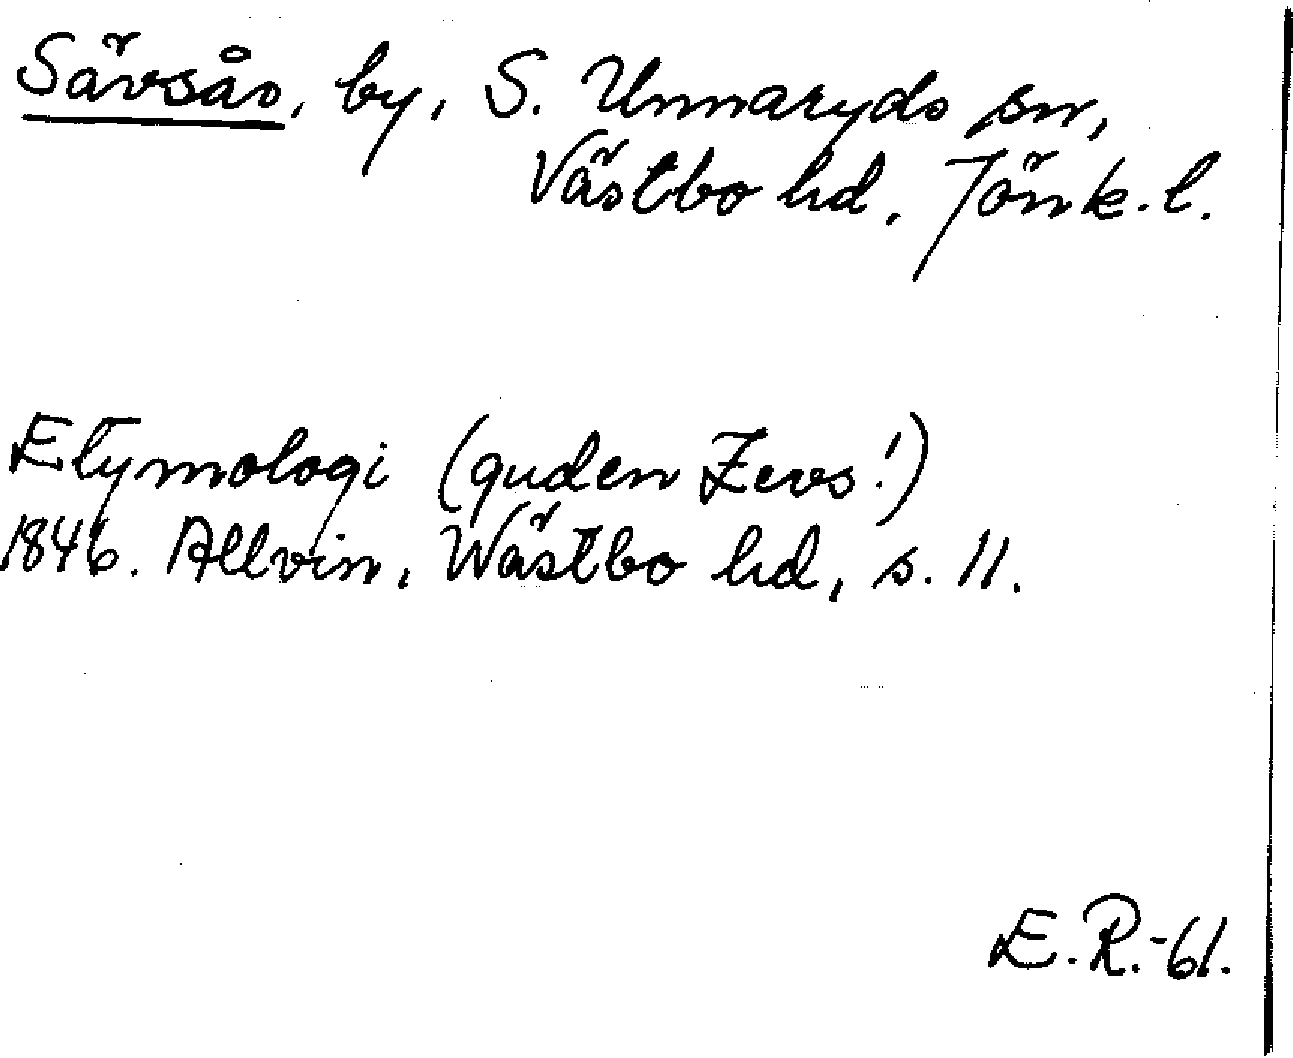 Sävsås, by, S. Unnaryds sn,
Västbo hd, Jönk.l.
Etymologi (guden Zevs!)
1846. Allvin, Wästbo hd, s. 11.
E.R.-61.